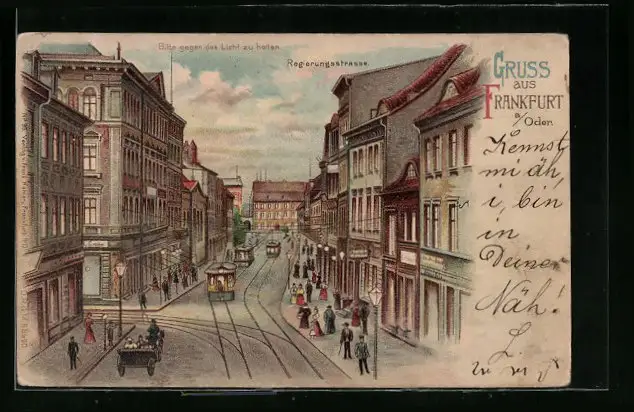 Bitte gegen das Licht zu halten.
Regierungsstrasse.
GRUSS
aus
FRANKFURT
a/Oder.
Kennst
mi äh,
i, bin
in
Deiner
Näh!